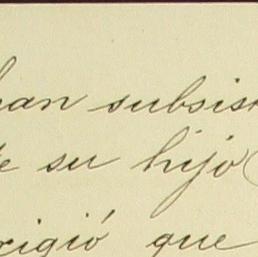 han subsis
e su hijo
rigió que